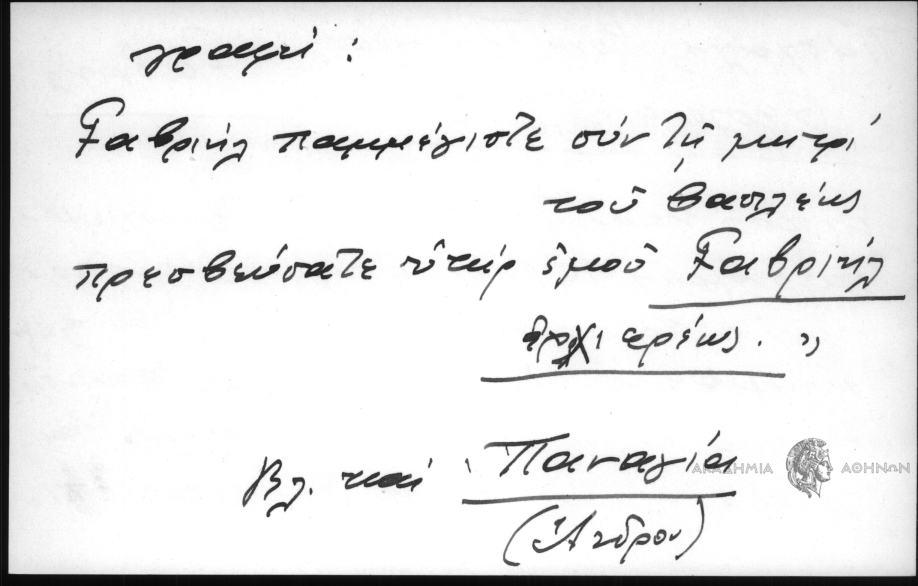 γραφή :
Γαβριήλ παμμέγιστε σύν τῇ μητρί
τοῦ βασιλέως
πρεσβεύσατε ὑπέρ ἐμοῦ Γαβριήλ
ἀρχιερέως . "
Βλ. καί Παναγία
(Ἄνδρου)
ΑΚΑΔΗΜΙΑ ΑΘΗΝΩΝ